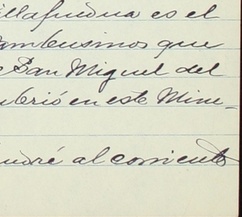 illafuedua es el
ambusimos que
San Miguel del
ubrió en este Minu-
endré al corriente